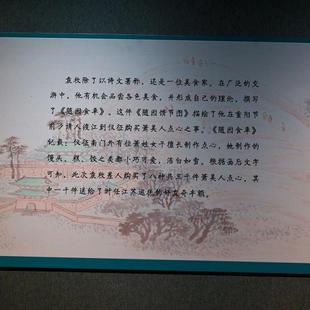 袁枚除了以诗文著称，还是一位美食家。在广泛的交
游中，他有机会品尝各色美食，并形成自己的理论，撰写
了《随园食单》。这件《随园馈节图》描绘了他在重阳节
前夕请人渡江到仪征购买萧美人点心之事。《随园食单》
记载：仪征南门外有位萧姓女子擅长制作点心，她制作的
馒头、糕、饺之类都小巧可爱，洁白如雪。根据画后文字
可知，此次袁枚差人购买了八种共三千件萧美人点心，其
中一千件送给了时任江苏巡抚的好友奇丰额。